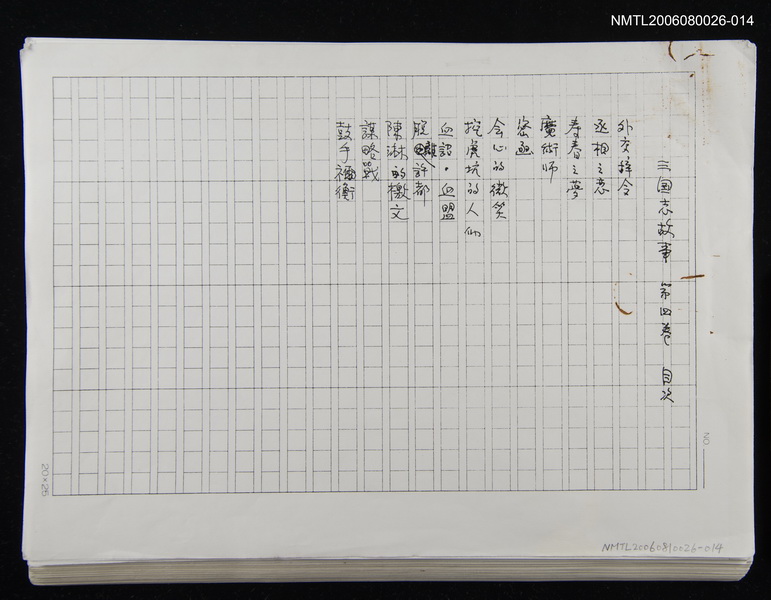 NMTL2006080026-014
三国志故事 第四巻 目次
外交辞令
丞相之意
寿春之夢
魔術師
密函
会心的微笑
挖虎坑的人们
血詔・血盟
脱離許都
陳琳的檄文
謀略戰
鼓手禰衡
NO.
20×25
NMTL20060810026-014